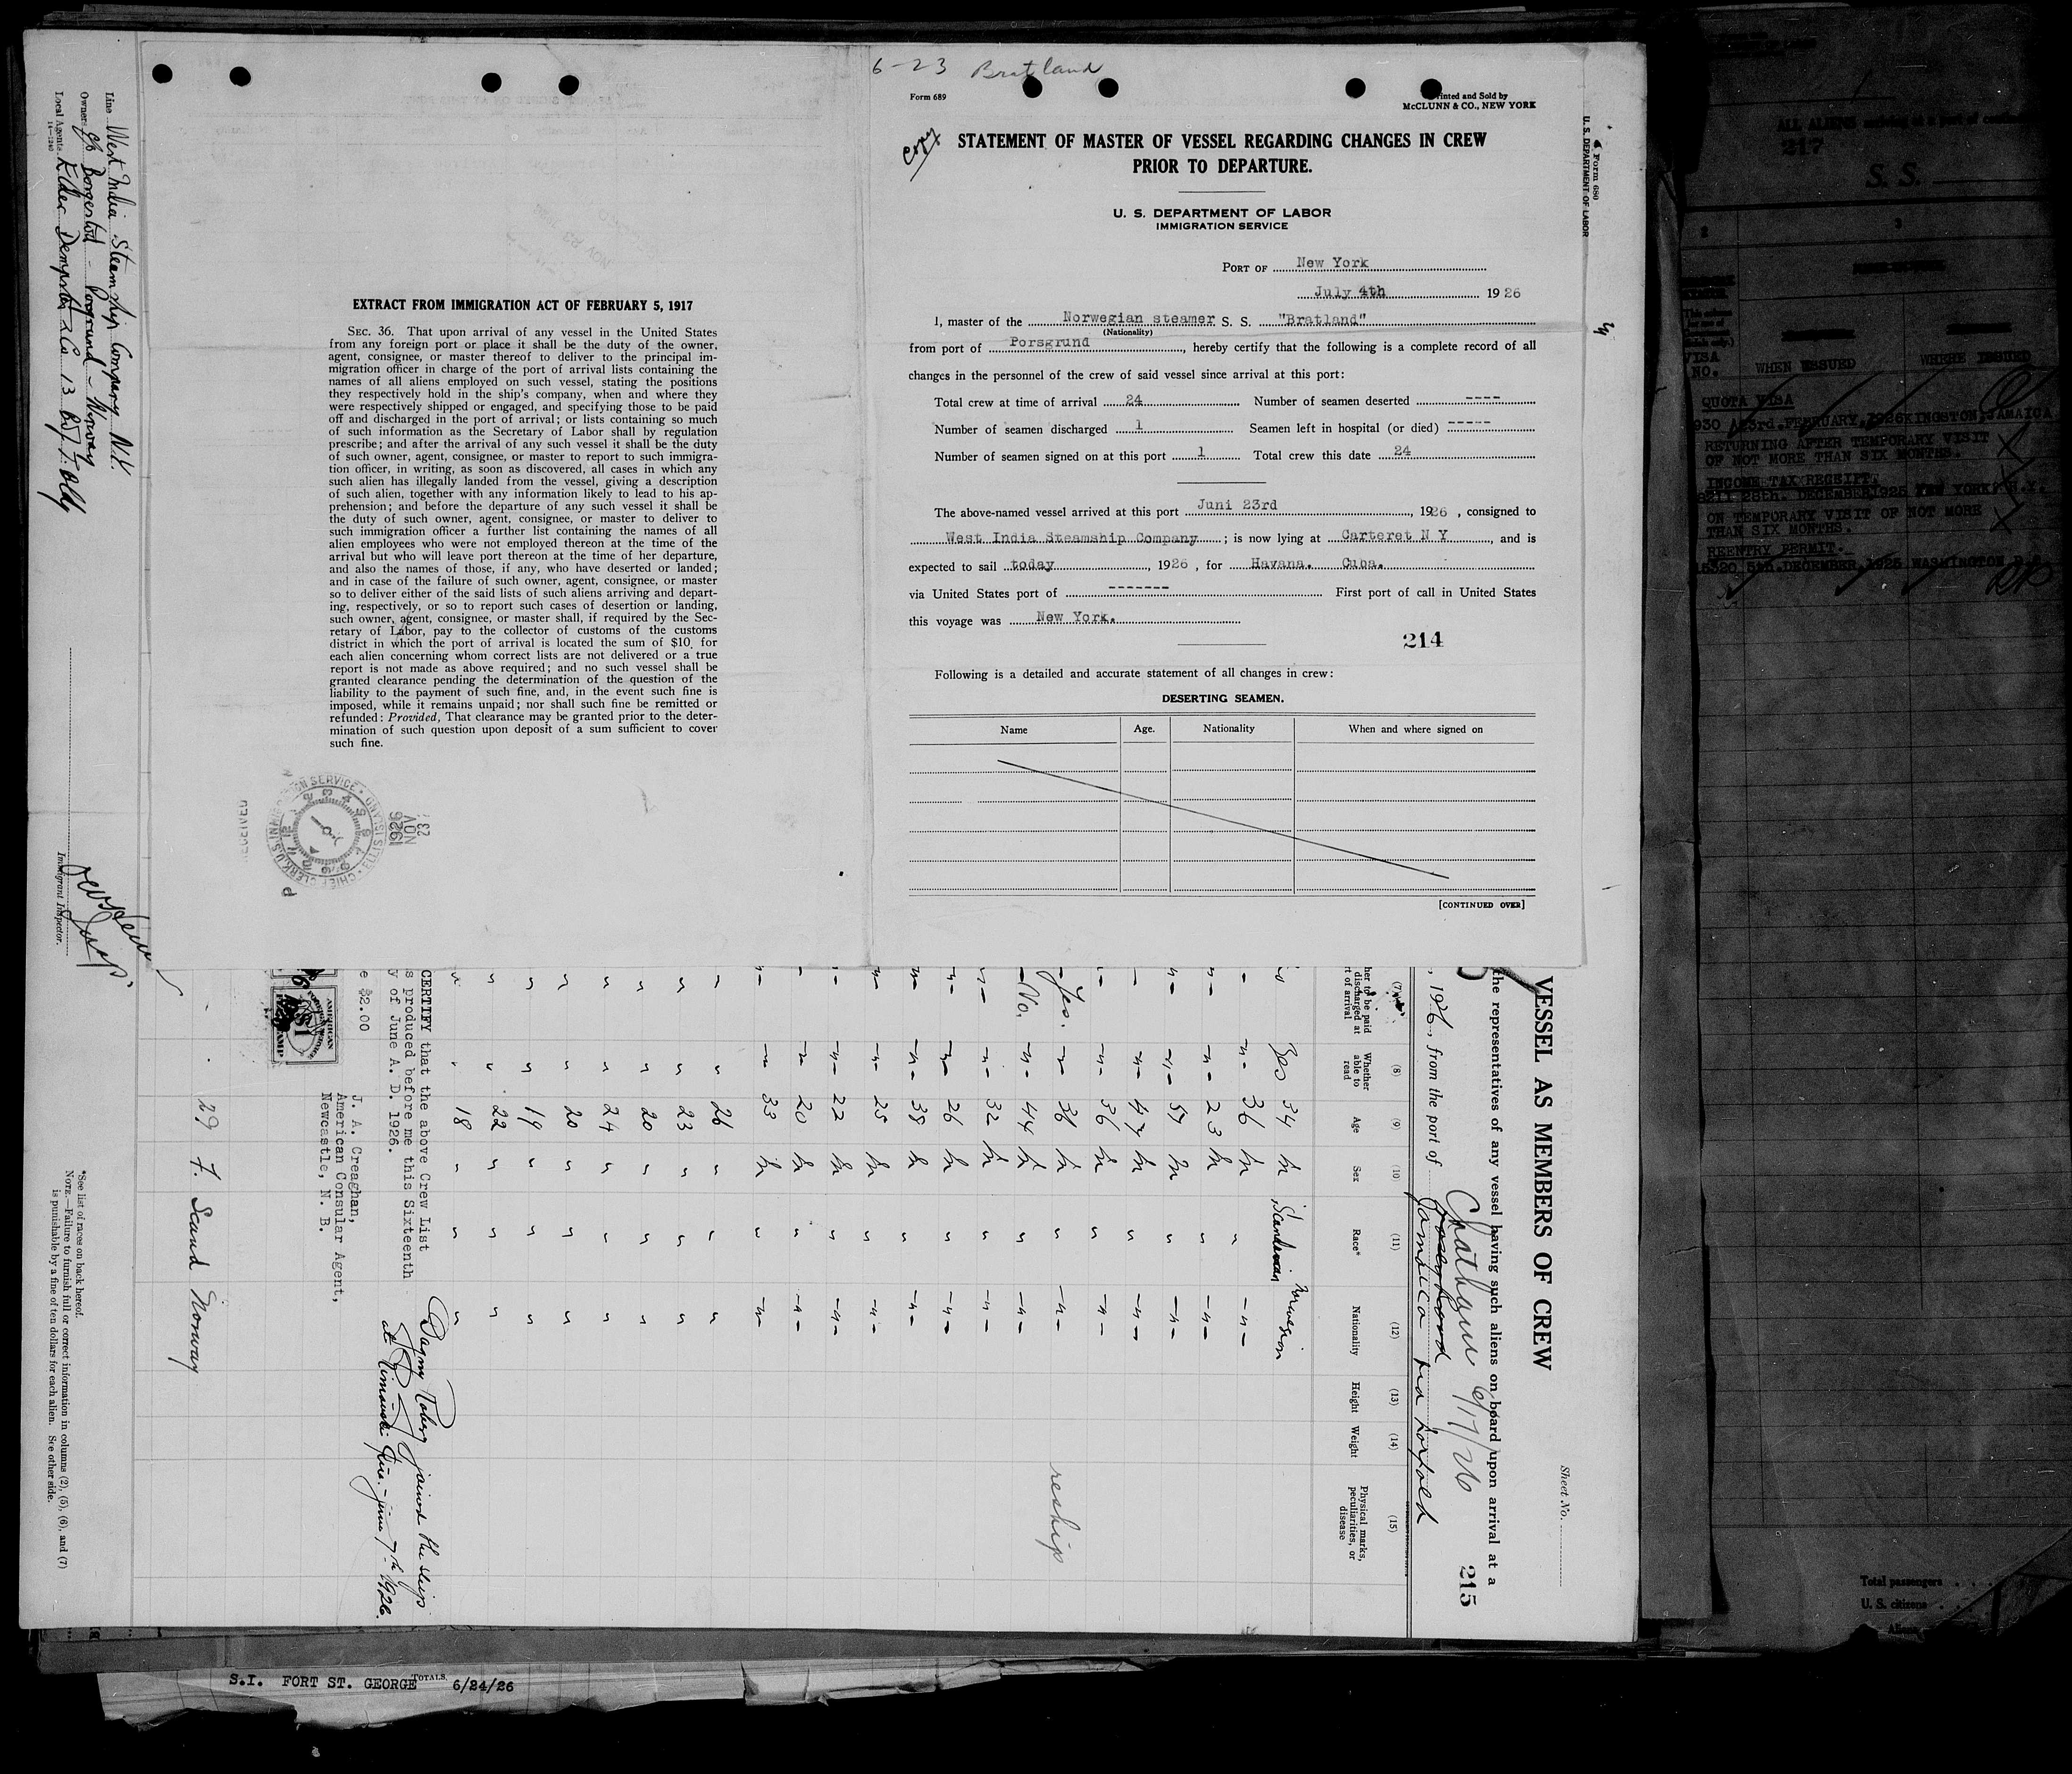 6-23 Bratland
Form 689
Printed and Sold by
McCLUNN & CO., NEW YORK
Copy
STATEMENT OF MASTER OF VESSEL REGARDING CHANGES IN CREW
PRIOR TO DEPARTURE.
U. S. DEPARTMENT OF LABOR
IMMIGRATION SERVICE
PORT OF New York
July 4th 1926
I, master of the Norwegian steamer S. S. "Bratland"
(Nationality)
from port of Porsgrund, hereby certify that the following is a complete record of all
changes in the personnel of the crew of said vessel since arrival at this port:
Total crew at time of arrival 24 Number of seamen deserted ----
Number of seamen discharged 1 Seamen left in hospital (or died) -----
Number of seamen signed on at this port 1 Total crew this date 24
The above-named vessel arrived at this port Juni 23rd, 1926, consigned to
West India Steamship Company; is now lying at Carteret N Y, and is
expected to sail today, 1926, for Havana. Cuba.
via United States port of ------- First port of call in United States
this voyage was New York.
214
Following is a detailed and accurate statement of all changes in crew:
DESERTING SEAMEN.
Name Age. Nationality When and where signed on
[CONTINUED OVER]
EXTRACT FROM IMMIGRATION ACT OF FEBRUARY 5, 1917
SEC. 36. That upon arrival of any vessel in the United States
from any foreign port or place it shall be the duty of the owner,
agent, consignee, or master thereof to deliver to the principal im-
migration officer in charge of the port of arrival lists containing the
names of all aliens employed on such vessel, stating the positions
they respectively hold in the ship's company, when and where they
were respectively shipped or engaged, and specifying those to be paid
off and discharged in the port of arrival; or lists containing so much
of such information as the Secretary of Labor shall by regulation
prescribe; and after the arrival of any such vessel it shall be the duty
of such owner, agent, consignee, or master to report to such immigra-
tion officer, in writing, as soon as discovered, all cases in which any
such alien has illegally landed from the vessel, giving a description
of such alien, together with any information likely to lead to his ap-
prehension; and before the departure of any such vessel it shall be
the duty of such owner, agent, consignee, or master to deliver to
such immigration officer a further list containing the names of all
alien employees who were not employed thereon at the time of the
arrival but who will leave port thereon at the time of her departure,
and also the names of those, if any, who have deserted or landed;
and in case of the failure of such owner, agent, consignee, or master
so to deliver either of the said lists of such aliens arriving and depart-
ing, respectively, or so to report such cases of desertion or landing,
such owner, agent, consignee, or master shall, if required by the Sec-
retary of Labor, pay to the collector of customs of the customs
district in which the port of arrival is located the sum of $10 for
each alien concerning whom correct lists are not delivered or a true
report is not made as above required; and no such vessel shall be
granted clearance pending the determination of the question of the
liability to the payment of such fine, and, in the event such fine is
imposed, while it remains unpaid; nor shall such fine be remitted or
refunded: Provided, That clearance may be granted prior to the deter-
mination of such question upon deposit of a sum sufficient to cover
such fine.
RECEIVED
CHIEF CLERK U.S. IMMIGRATION SERVICE · ELLIS ISLAND
NOV 23
1926
Line West India Steamship Company N.Y.
Owners Borgestad - Porsgrund - Norway
Local Agents Elder Dempster & Co
14-1240
Immigrant Inspector.
Form 680
U. S. DEPARTMENT OF LABOR
Sheet No.
VESSEL AS MEMBERS OF CREW
the representatives of any vessel having such aliens on board upon arrival at a
Chatham 6/17/26
215
, 1926, from the port of Jamaica via Norfolk
(7) (8) (9) (10) (11) (12) (13) (14) (15)
her to be paid
discharged at
rt of arrival
Whether
able to
read
Age
Sex
Race*
Nationality
Height
Weight
Physical marks,
peculiarities, or
disease
Yes 34 m Scandinavian Norwegian
-"- 36 m " -"-
-"- 23 m " -"-
-"- 57 m " -"-
-"- 47 m " -"-
-"- 36 m " -"-
Yes. -"- 36 m " -"- reship
No. -"- 44 m " -"-
-"- 32 m " -"-
-"- 26 m " -"-
-"- 38 m " -"-
-"- 25 m " -"-
-"- 22 m " -"-
-"- 20 m " -"-
-"- 33 m " -"-
" " 26 " " "
" " 23 " " "
" " 20 " " "
" " 24 " " "
" " 20 " " "
" " 19 " " "
" " 22 " " "
" " 18 " " "
CERTIFY that the above Crew List
s produced before me this Sixteenth
y of June A. D. 1926.
e $2.00
J. A. Creaghan,
American Consular Agent,
Newcastle, N. B.
AMERICAN
Dagny joined the ships
at Rimouski Que. - june 7th 1926.
29 f. Scand Norway
*See list of races on back hereof.
NOTE.—Failure to furnish full or correct information in columns (2), (5), (6), and (7)
is punishable by a fine of ten dollars for each alien. See other side.
S.I. FORT ST. GEORGE TOTALS. 6/24/26
ALL ALIENS
217
S. S.
2 3
VISA
NO.
WHEN ISSUED WHERE ISSUED
QUOTA VISA
930 23rd.FEBRUARY,1926 KINGSTON,JAMAICA
RETURNING AFTER TEMPORARY VISIT
OF NOT MORE THAN SIX MONTHS.
INCOME TAX RECEIPT.
28th. DECEMBER 1925 NEW YORK, N.Y.
ON TEMPORARY VISIT OF NOT MORE
THAN SIX MONTHS.
REENTRY PERMIT.
5th.DECEMBER,1925 WASHINGTON,D.C.
Total passengers
U. S. citizens